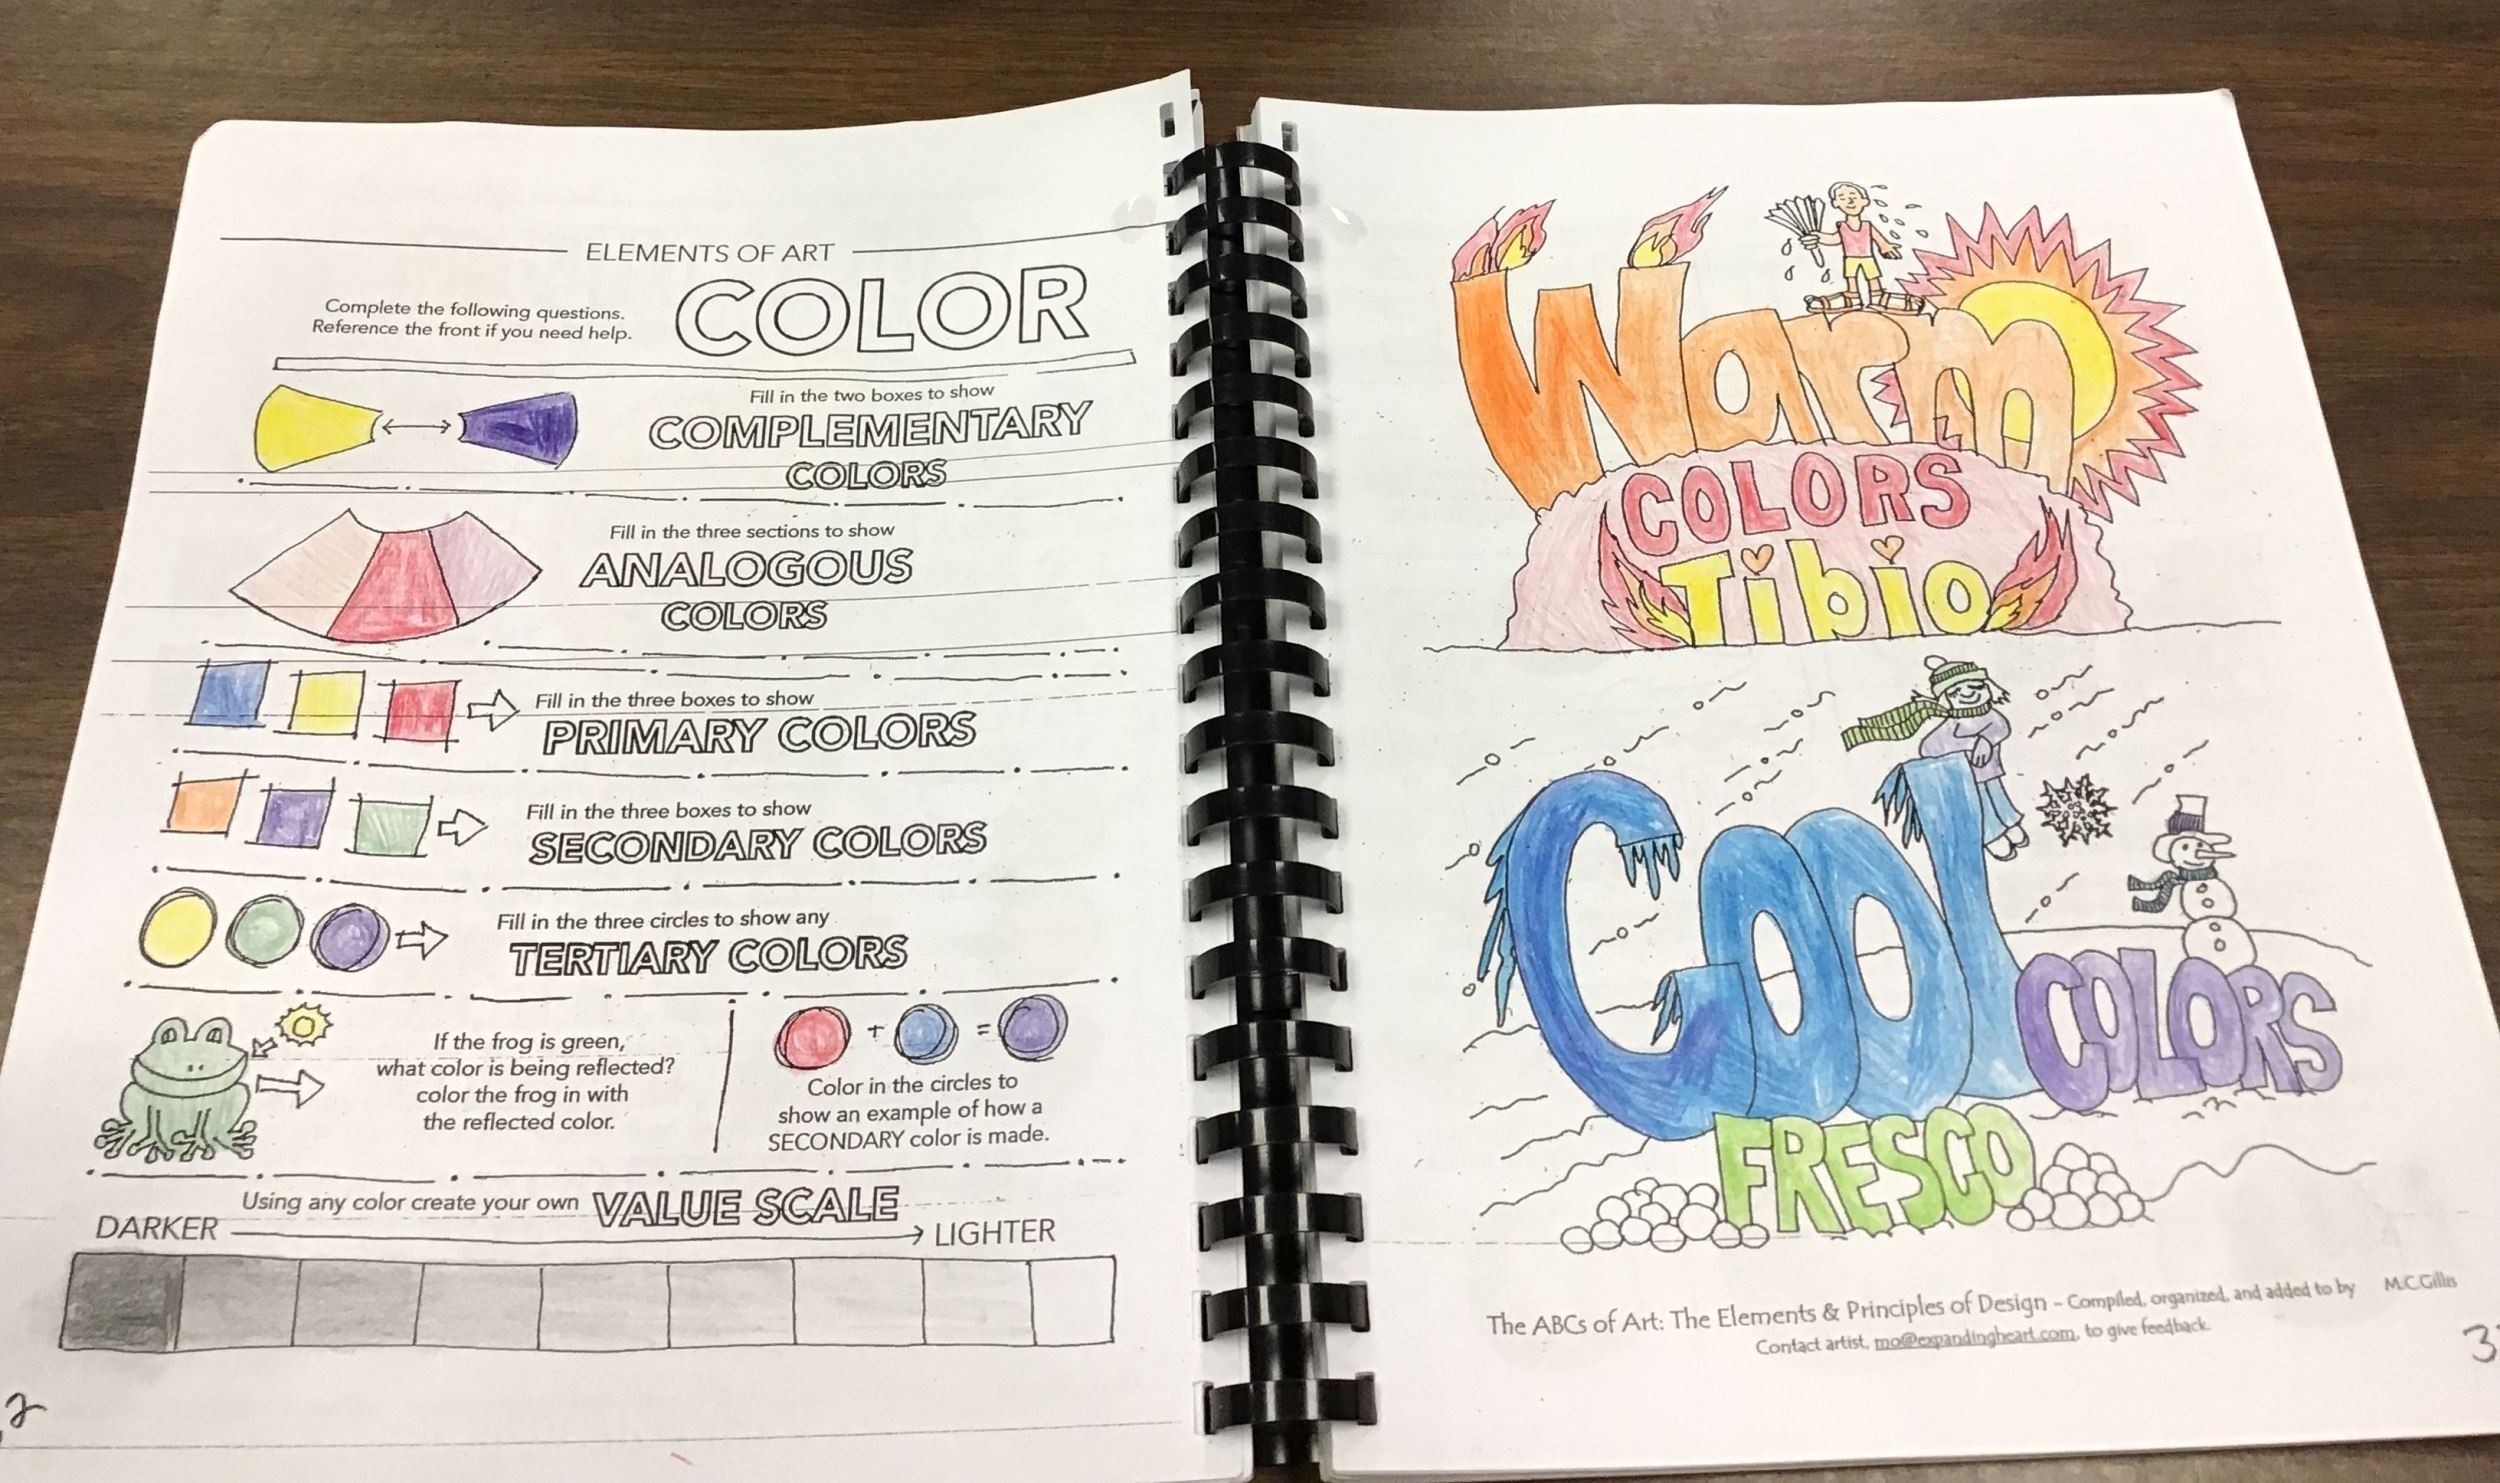 ELEMENTS OF ART
Complete the following questions.
Reference the front if you need help.
COLOR
Fill in the two boxes to show
COMPLEMENTARY
COLORS
Fill in the three sections to show
ANALOGOUS
COLORS
Fill in the three boxes to show
PRIMARY COLORS
Fill in the three boxes to show
SECONDARY COLORS
Fill in the three circles to show any
TERTIARY COLORS
If the frog is green,
what color is being reflected?
color the frog in with
the reflected color.
+ =
Color in the circles to
show an example of how a
SECONDARY color is made.
Using any color create your own VALUE SCALE
DARKER LIGHTER
2
Warm
COLORS
Tibio
Cool
COLORS
FRESCO
The ABCs of Art: The Elements & Principles of Design - Compiled, organized, and added to by M.C.Gillis
Contact artist, mo@expandingheart.com, to give feedback.
3